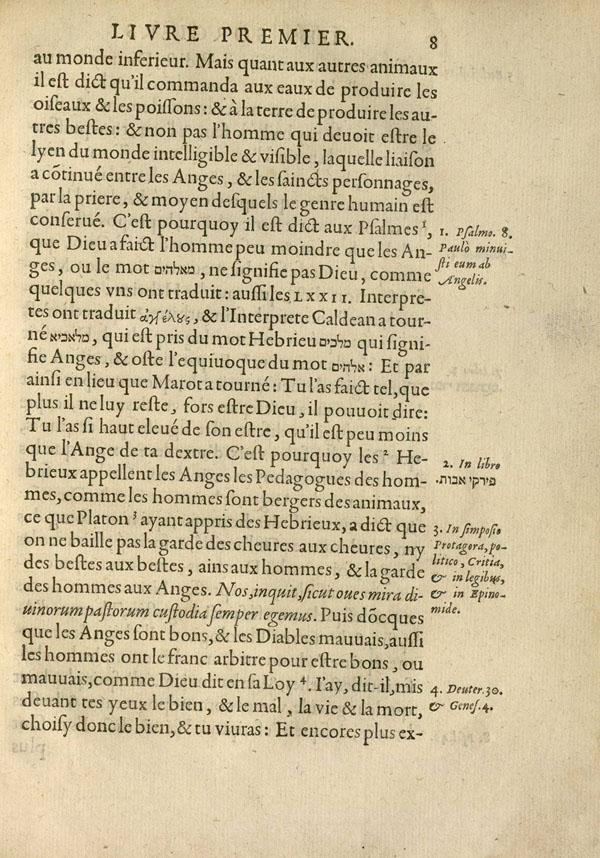 LIVRE PREMIER. 8
au monde inferieur. Mais quant aux autres animaux
il est dict qu'il commanda aux eaux de produire les
oiseaux & les poissons: & à la terre de produire les au-
tres bestes: & non pas l'homme qui deuoit estre le
lyen du monde intelligible & visible, laquelle liaison
a cõtinué entre les Anges, & les saincts personnages,
par la priere, & moyen desquels le genre humain est
conserué. C'est pourquoy il est dict aux Psalmes ¹,
que Dieu a faict l'homme peu moindre que les An-
ges, ou le mot מאלהים, ne signifie pas Dieu, comme
quelques vns ont traduit: aussi les LXXII. Interpre-
tes ont traduit ἀγγέλους, & l'Interprete Caldean a tour-
né מלאכיא, qui est pris du mot Hebrieu מלכים qui signi-
fie Anges, & oste l'equiuoque du mot אלהים: Et par
ainsi en lieu que Marot a tourné: Tu l'as faict tel, que
plus il ne luy reste, fors estre Dieu, il pouuoit dire:
Tu l'as si haut eleué de son estre, qu'il est peu moins
que l'Ange de ta dextre. C'est pourquoy les ² He-
brieux appellent les Anges les Pedagogues des hom-
mes, comme les hommes sont bergers des animaux,
ce que Platon ³ ayant appris des Hebrieux, a dict que
on ne baille pas la garde des cheures aux cheures, ny
des bestes aux bestes, ains aux hommes, & la garde
des hommes aux Anges. Nos, inquit, sicut oues mira di-
uinorum pastorum custodia semper egemus. Puis dõcques
que les Anges sont bons, & les Diables mauuais, aussi
les hommes ont le franc arbitre pour estre bons, ou
mauuais, comme Dieu dit en sa Loy ⁴. I'ay, dit-il, mis
deuant tes yeux le bien, & le mal, la vie & la mort,
choisy donc le bien, & tu viuras: Et encores plus ex-
1. Psalmo. 8.
Paulò minui-
sti eum ab
Angelis.
2. In libro
פירקי אבות.
3. In simposio
Protagora, po-
litico, Critia,
& in legibus,
& in Epino-
mide.
4. Deuter. 30.
& Genes. 4.